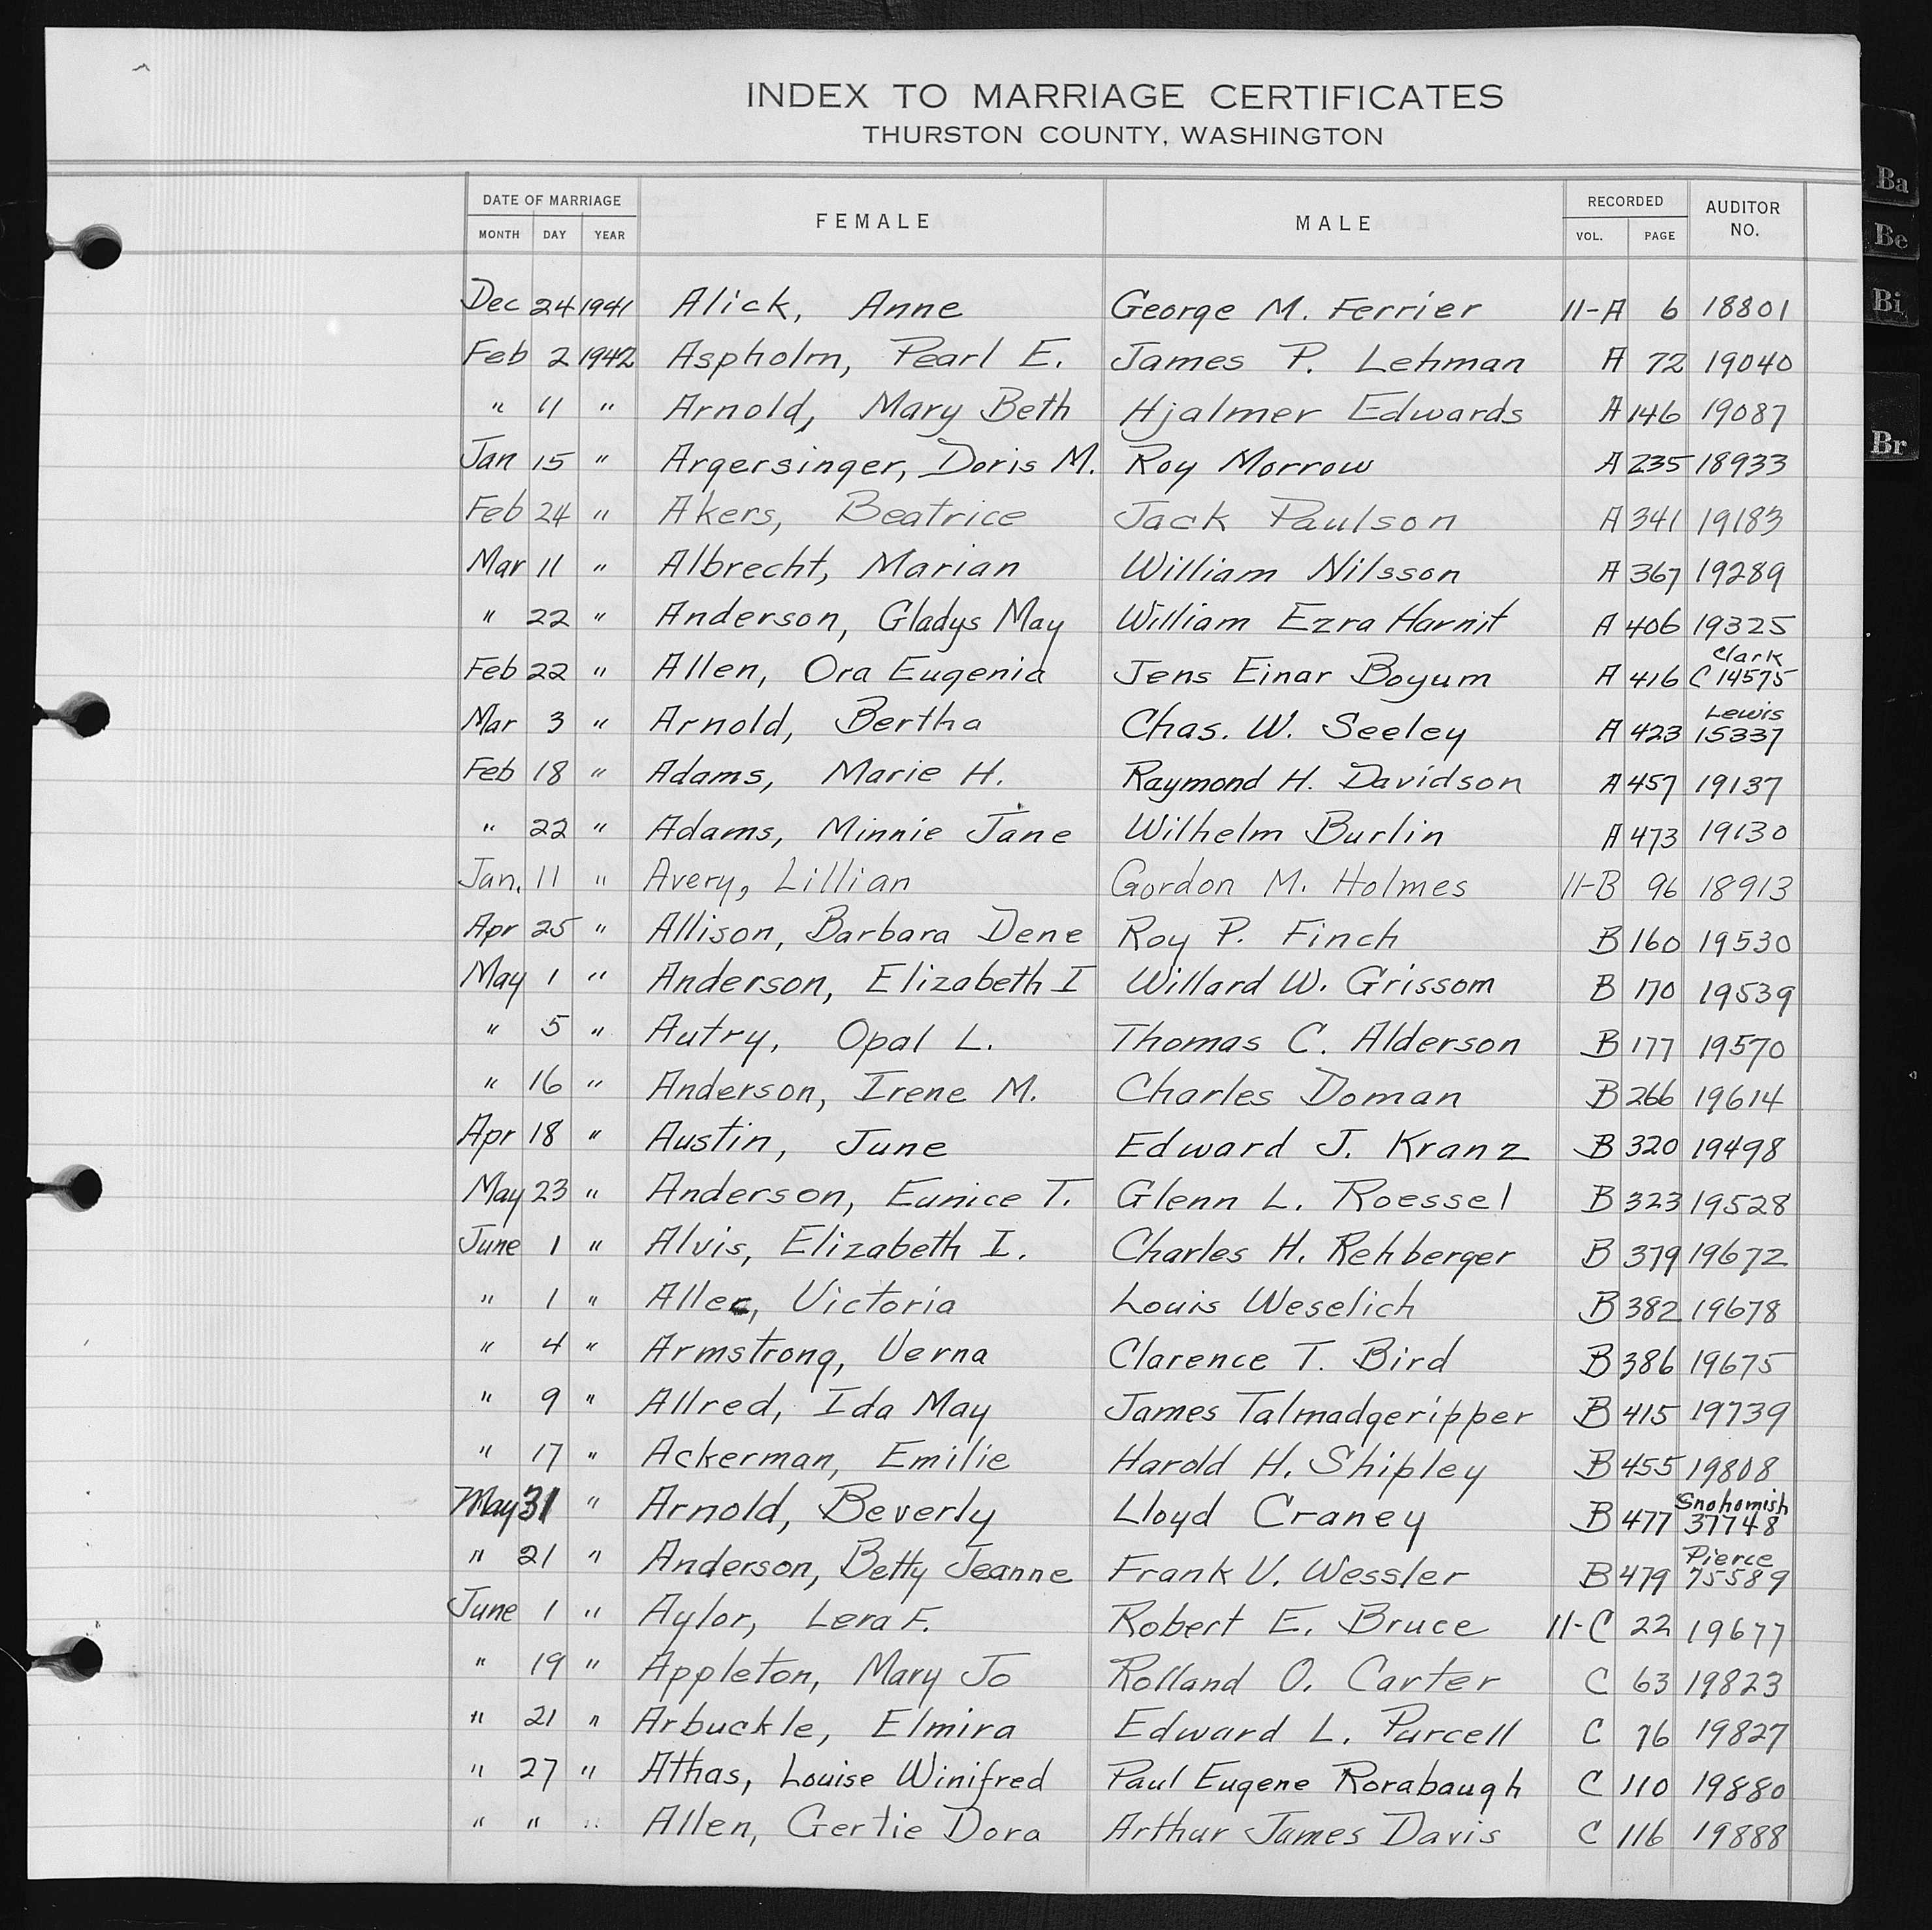 INDEX TO MARRIAGE CERTIFICATES
THURSTON COUNTY, WASHINGTON
DATE OF MARRIAGE FEMALE MALE RECORDED AUDITOR NO.
MONTH DAY YEAR VOL. PAGE
Dec 24 1941 Alick, Anne George M. Ferrier 11-A 6 18801
Feb 2 1942 Aspholm, Pearl E. James P. Lehman A 72 19040
" 11 " Arnold, Mary Beth Hjalmer Edwards A 146 19087
Jan 15 " Argersinger, Doris M. Roy Morrow A 235 18933
Feb 24 " Akers, Beatrice Jack Paulson A 341 19183
Mar 11 " Albrecht, Marian William Nilsson A 367 19289
" 22 " Anderson, Gladys May William Ezra Harnit A 406 19325
Feb 22 " Allen, Ora Eugenia Jens Einar Boyum A 416 Clark C 14575
Mar 3 " Arnold, Bertha Chas. W. Seeley A 423 Lewis 15337
Feb 18 " Adams, Marie H. Raymond H. Davidson A 457 19137
" 22 " Adams, Minnie Jane Wilhelm Burlin A 473 19130
Jan. 11 " Avery, Lillian Gordon M. Holmes 11-B 96 18913
Apr 25 " Allison, Barbara Dene Roy P. Finch B 160 19530
May 1 " Anderson, Elizabeth I Willard W. Grissom B 170 19539
" 5 " Autry, Opal L. Thomas C. Alderson B 177 19570
" 16 " Anderson, Irene M. Charles Doman B 266 19614
Apr 18 " Austin, June Edward J. Kranz B 320 19498
May 23 " Anderson, Eunice T. Glenn L. Roessel B 323 19528
June 1 " Alvis, Elizabeth I. Charles H. Rehberger B 379 19672
" 1 " Allec, Victoria Louis Weselich B 382 19678
" 4 " Armstrong, Verna Clarence T. Bird B 386 19675
" 9 " Allred, Ida May James Talmadgeripper B 415 19739
" 17 " Ackerman, Emilie Harold H. Shipley B 455 19808
May 31 " Arnold, Beverly Lloyd Craney B 477 Snohomish 37748
" 21 " Anderson, Betty Jeanne Frank V. Wessler B 479 Pierce 75589
June 1 " Aylor, Lera F. Robert E. Bruce 11-C 22 19677
" 19 " Appleton, Mary Jo Rolland O. Carter C 63 19823
" 21 " Arbuckle, Elmira Edward L. Purcell C 76 19827
" 27 " Athas, Louise Winifred Paul Eugene Rorabaugh C 110 19880
" " " Allen, Gertie Dora Arthur James Davis C 116 19888
Ba
Be
Bi
Br